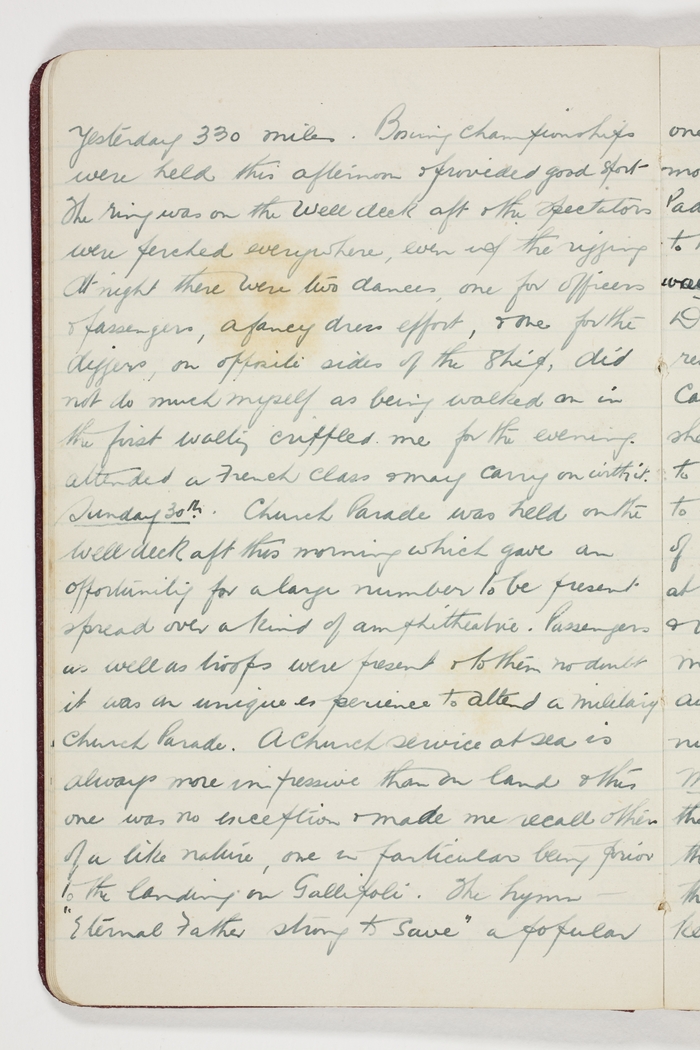 Yesterday 330 miles. Boxing championships
were held this afternoon & provided good sport
The ring was on the Well deck aft & the spectators
were perched everywhere, even in the rigging
At night there were two dances, one for officers
& passengers, a fancy dress effort, & one for the
diggers, on opposite sides of the ship, did
not do much myself as being walked on in
the first waltz crippled me for the evening.
attended a French class & may carry on with it.
Sunday 30th. Church Parade was held on the
well deck aft this morning which gave an
opportunity for a large number to be present
spread over a kind of amphitheatre. Passengers
as well as troops were present & to them no doubt
it was an unique experience to attend a military
Church Parade. A Church service at sea is
always more impressive than on land & this
one was no exception & made me recall others
of a like nature, one in particular being prior
to the landing on Gallipoli. The hymn —
"Eternal Father strong to Save" a popular